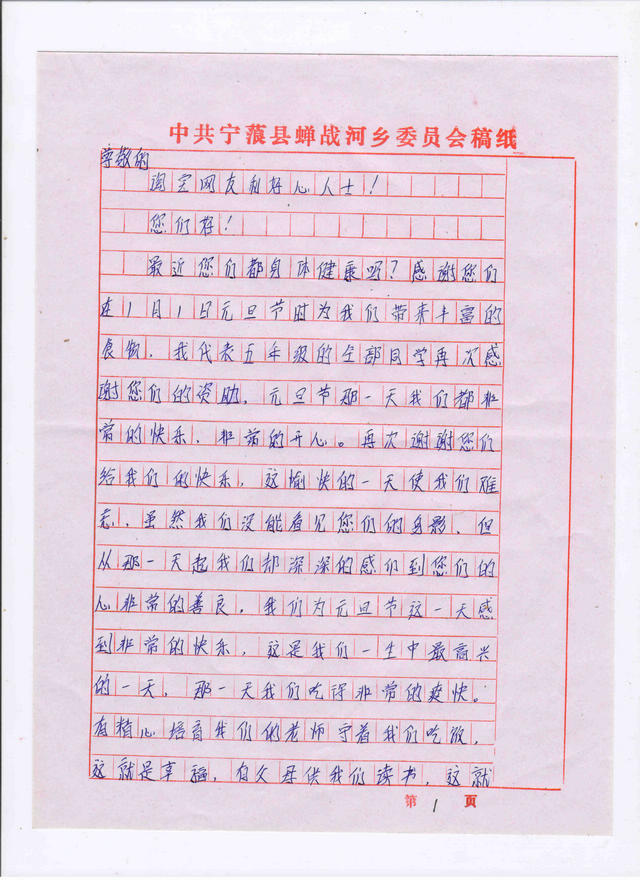 中共宁蒗县蝉战河乡委员会稿纸
尊敬的
淘宝网友和好心人士！
您们好！
最近您们都身体健康吗？感谢您们
在1月1日元旦节时为我们带来丰富的
食物，我代表五年级的全部同学再次感
谢您们的资助，元旦节那一天我们都非
常的快乐，非常的开心。再次谢谢您们
给我们的快乐，这愉快的一天使我们难
忘，虽然我们没能看见您们的身影，但
从那一天起我们却深深的感们到您们的
心非常的善良，我们为元旦节这一天感
到非常的快乐，这是我们一生中最高兴
的一天，那一天我们吃得非常的爽快。
有精心培育我们的老师守着我们吃饭，
这就是幸福，有父母供我们读书，这就
第1页